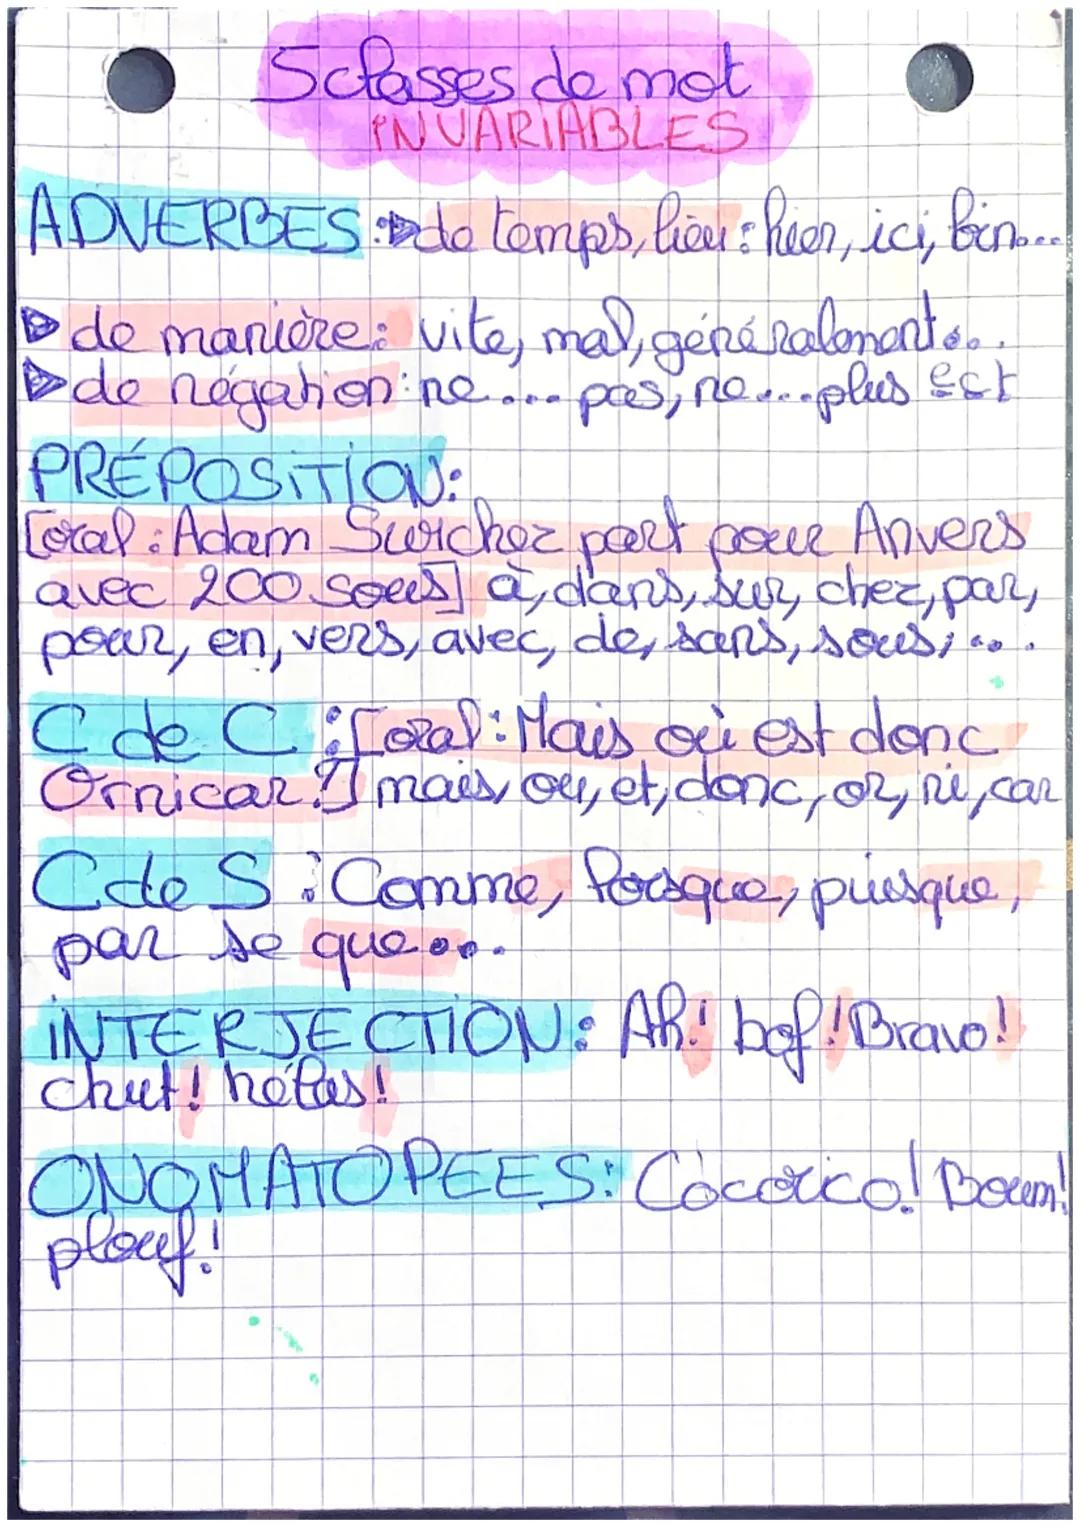 5 classes de mot
INVARIABLES
ADVERBES : de temps, lieu : hier, ici, bin...
de manière : vite, mal, généralement...
de négation : ne .... pas, ne....plus ect
PRÉPOSITION :
[oral : Adam Surchez part pour Anvers
avec 200 sous] à, dans, sur, chez, par,
pour, en, vers, avec, de, sans, sous, ...
C de C : [oral : Mais où est donc
Ornicar ?] mais, ou, et, donc, or, ni, car
C de S : Comme, lorsque, puisque,
par se que...
INTERJECTION : Ah ! bof ! Bravo !
chut ! hélas !
ONOMATOPEES : Cocorico ! Boum !
plouf !